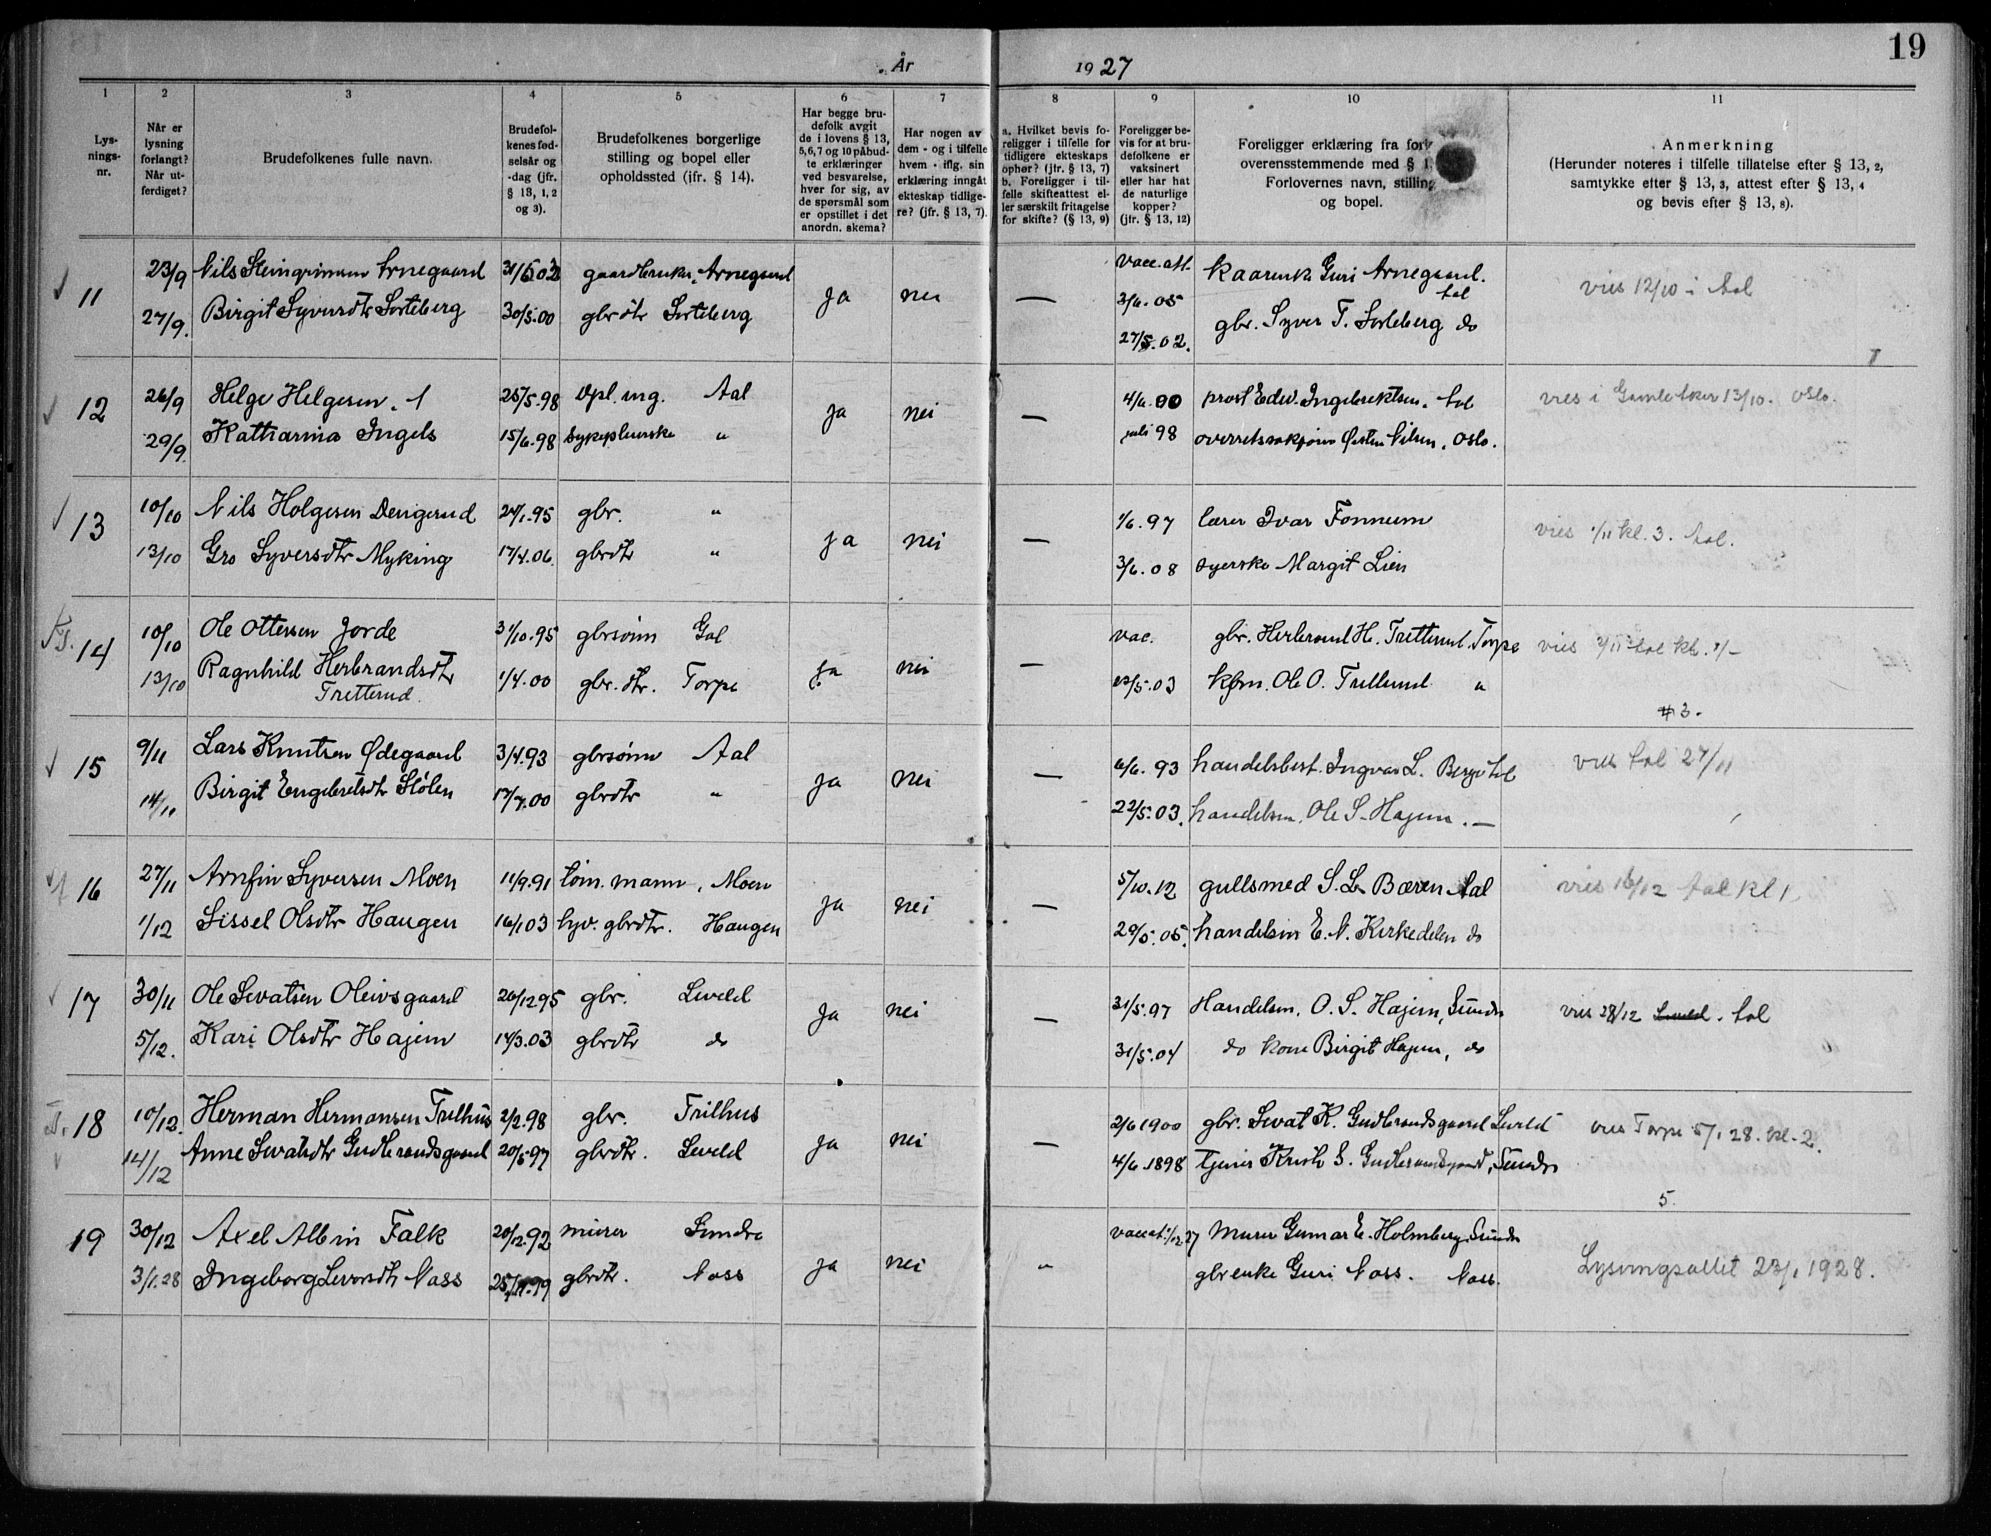 19
År 1927
1 2 3 4 5 6 7 8 9 10 11
Lys-
nings-
nr.
Når er
lysning
forlangt?
Når ut-
ferdiget?
Brudefolkenes fulle navn.
Brudefol-
kenes fød-
selsår og
-dag (jfr.
§ 13, 1, 2
og 3).
Brudefolkenes borgerlige
stilling og bopel eller
opholdssted (jfr. § 14).
Har begge bru-
defolk avgit
de i lovens § 13,
5,6,7 og 10 påbud-
te erklæringer
ved besvarelse,
hver for sig, av
de spørsmål som
er opstillet i det
anordn. skema?
Har nogen av
dem - og i tilfelle
hvem - iflg. sin
erklæring inngåt
ekteskap tidlige-
re? (jfr. § 13, 7).
a. Hvilket bevis fo-
religger i tilfelle for
tidligere ekteskaps
ophør? (jfr. § 13, 7)
b. Foreligger i til-
felle skifteattest el-
ler særskilt fritagelse
for skifte? (§ 13, 9)
Foreligger be-
vis for at bru-
defolkene er
vaksinert
eller har hat
de naturlige
kopper?
(jfr. § 13, 12)
Foreligger erklæring fra
overensstemmende med §
Forlovernes navn, stilling
og bopel.
Anmerkning
(Herunder noteres i tilfelle tillatelse efter § 13, 2,
samtykke efter § 13, 3, attest efter § 13, 4
og bevis efter § 13, 8).
11 23/9 Nils Steingrimsen Arnegaard gaardbruker, Arnegaard ja nei — vacc.att. Guri Arnegaard. Aal vies 12/10 i Aal
27/9. Birgit Syversdtr Sorteberg 30/5.00 gbrdtr Sorteberg 3/6.05 gbr. Syver T. Sorteberg do
27/5.02.
12 26/9 Helge Helgesen 25/5.98 dpl. ing. Aal ja nei — 4/6.00 prost Edv. Ingebrektsen. Aal vies i Gamle Aker 13/10. Oslo.
29/9 Katharina Ingels 15/6.98 Sykepleierske " juli 98 overretssakfører Nilsen, Oslo.
13 10/10 Nils Holgersen Dengerud 24/1.95 gbr. " ja nei — 1/6.97 lærer Ivar Fonnum vies 1/11 kl. 3. Aal.
13/10 Gro Syversdtr Myking 17/4.06. gbrdtr " 3/6.08 syerske Margit Lien
14 10/10 Ole Ottersen Jorde 31/10.95 gbrsønn Gol ja nei — vac. gbr. Herbrand H. Tretterud. Torpe
13/10 Ragnhild Herbrandsdtr 1/4.00 gbr. dtr. Torpe 03 Ole O. Tretterud "
Tretterud.
3.
15 9/11 Lars Knutsen Ødegaard 3/4.93 gbrsønn Aal ja nei — 6/6.93 handelsbest. Ingvar L. Berge Aal vies Aal 27/11
14/11 Birgit Engebretsdtr Stølen 17/7.00 gbrdtr " 22/5.03. handelsm. Ole S. Hagen. —
16 27/11 Arnfin Syversen Moen 11/9.91 tøm. mann, Moen ja nei — 5/10.12 gullsmed S. L. Bæren Aal vies 16/12 Aal kl 1
1/12 Sissel Olsdtr Haugen 16/1 03 gbrdtr. Haugen 29/5.05. handelsm E. N. Kirkedelen do
17 30/11 Ole Sevatsen Oleivsgaard 26/12 95 gbr. Leveld ja nei — 31/5.97 Handelsm. O. S. Hagen, Sundre vies 28/12 Leveld. Aal
5/12. Kari Olsdtr Hagen 14/3.03 gbrdtr do 31/5.04 do kone Birgit Hagen, do
18 10/12. Herman Hermansen Trilhus 2/2.98 gbr. Trilhus ja nei — 2/6 1900 gbr. Sevat K. Gudbrandsgaard Leveld vies Torpe 5/1 28. kl. 2.
14/12 Anne Sevatsdtr Gudbrandsgaard 20/5 97 gbrdtr. Leveld 4/6.1898 S. Gudbrandsgaard, Sundre
5.
19 30/12 Axel Albin Falk 20/12.92 murer Sundre ja nei " Murer Gunnar E. Holmberg, Sundre
3/1.28 Ingeborg Nass gbrdtr. Nass gbrenke Guri Nass. Nass. Lysningsattest 23/1 1928.